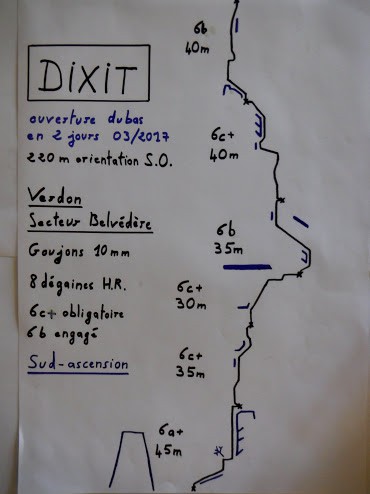 DiXiT
ouverture du bas
en 2 jours 03/2017
220 m orientation S.O.
Verdon
Secteur Belvédère
Goujons 10 mm
8 dégaines H.R.
6c+ obligatoire
6b engagé
Sud-ascension
6b
40m
6c+
40m
6b
35m
6c+
30m
6c+
35m
6a+
45m